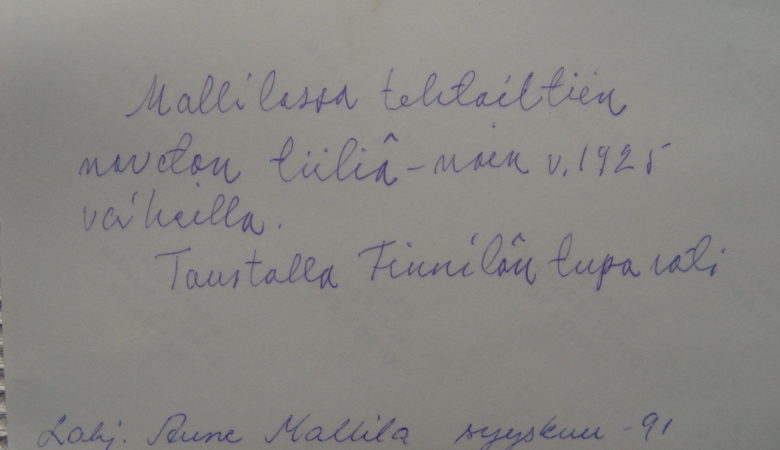 Mallilassa tehtailtiin
navetan tiiliä - noin v. 1925
vaiheilla.
Taustalla Finnilän tupa
Lahj. Aune Mallila syyskuu -91